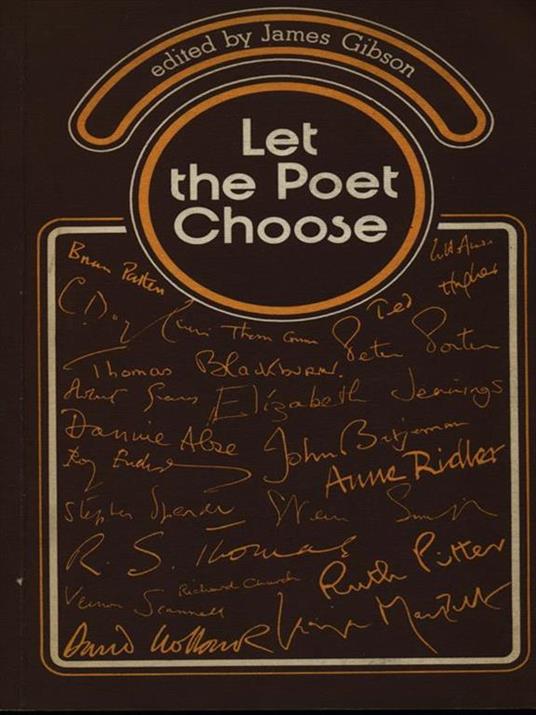 edited by James Gibson
Let
the Poet
Choose
Brian Patten
W H Auden
C. Day
Ted Hughes
Thom Gunn
Peter Porter
Thomas Blackburn.
Elizabeth Jennings
Dannie Abse
John Betjeman
Roy Fuller
Anne Ridler
Stephen Spender
R. S. Thomas
Ruth Pitter
Richard Church
Vernon Scannell
David Holbrook